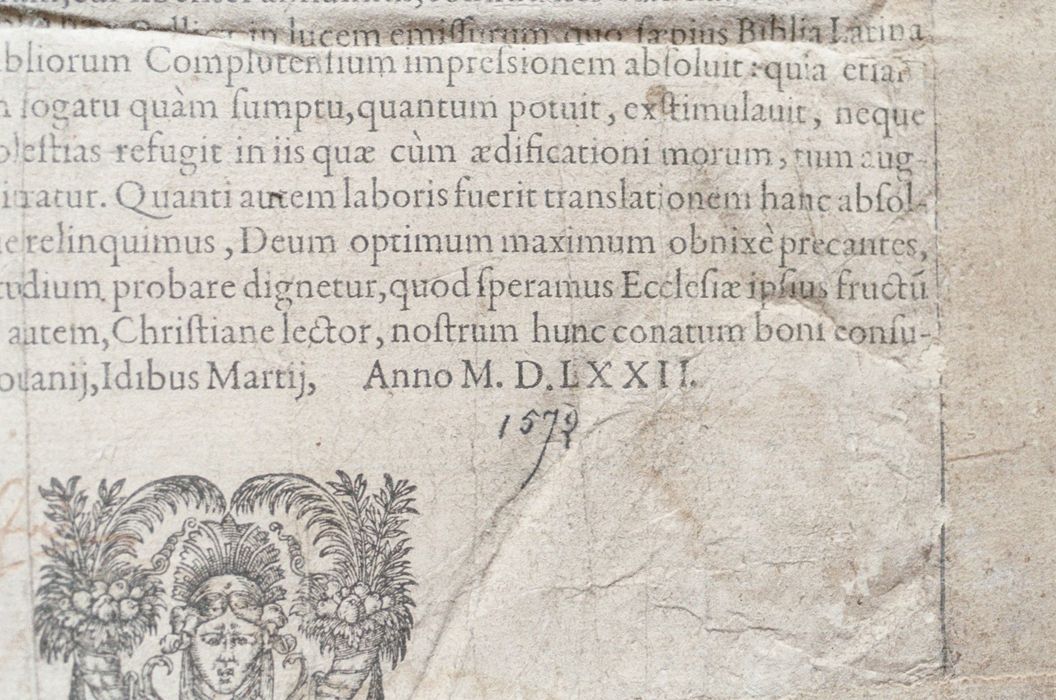 in lucem emiſſurum quo ſæpius Biblia Latina
bliorum Complutenſium impreſsionem abſoluit: quia etiam
ſogatu quàm ſumptu, quantum potuit, exſtimulauit, neque
leſtias refugit in iis quæ cùm ædificationi morum, tum aug-
itratur. Quanti autem laboris fuerit translationem hanc abſol-
relinquimus, Deum optimum maximum obnixè precantes,
tudium probare dignetur, quod ſperamus Eccleſiæ ipſius fructū
autem, Chriſtiane lector, noſtrum hunc conatum boni conſu-
ouanij, Idibus Martij, Anno M. D. LXXII.
1572